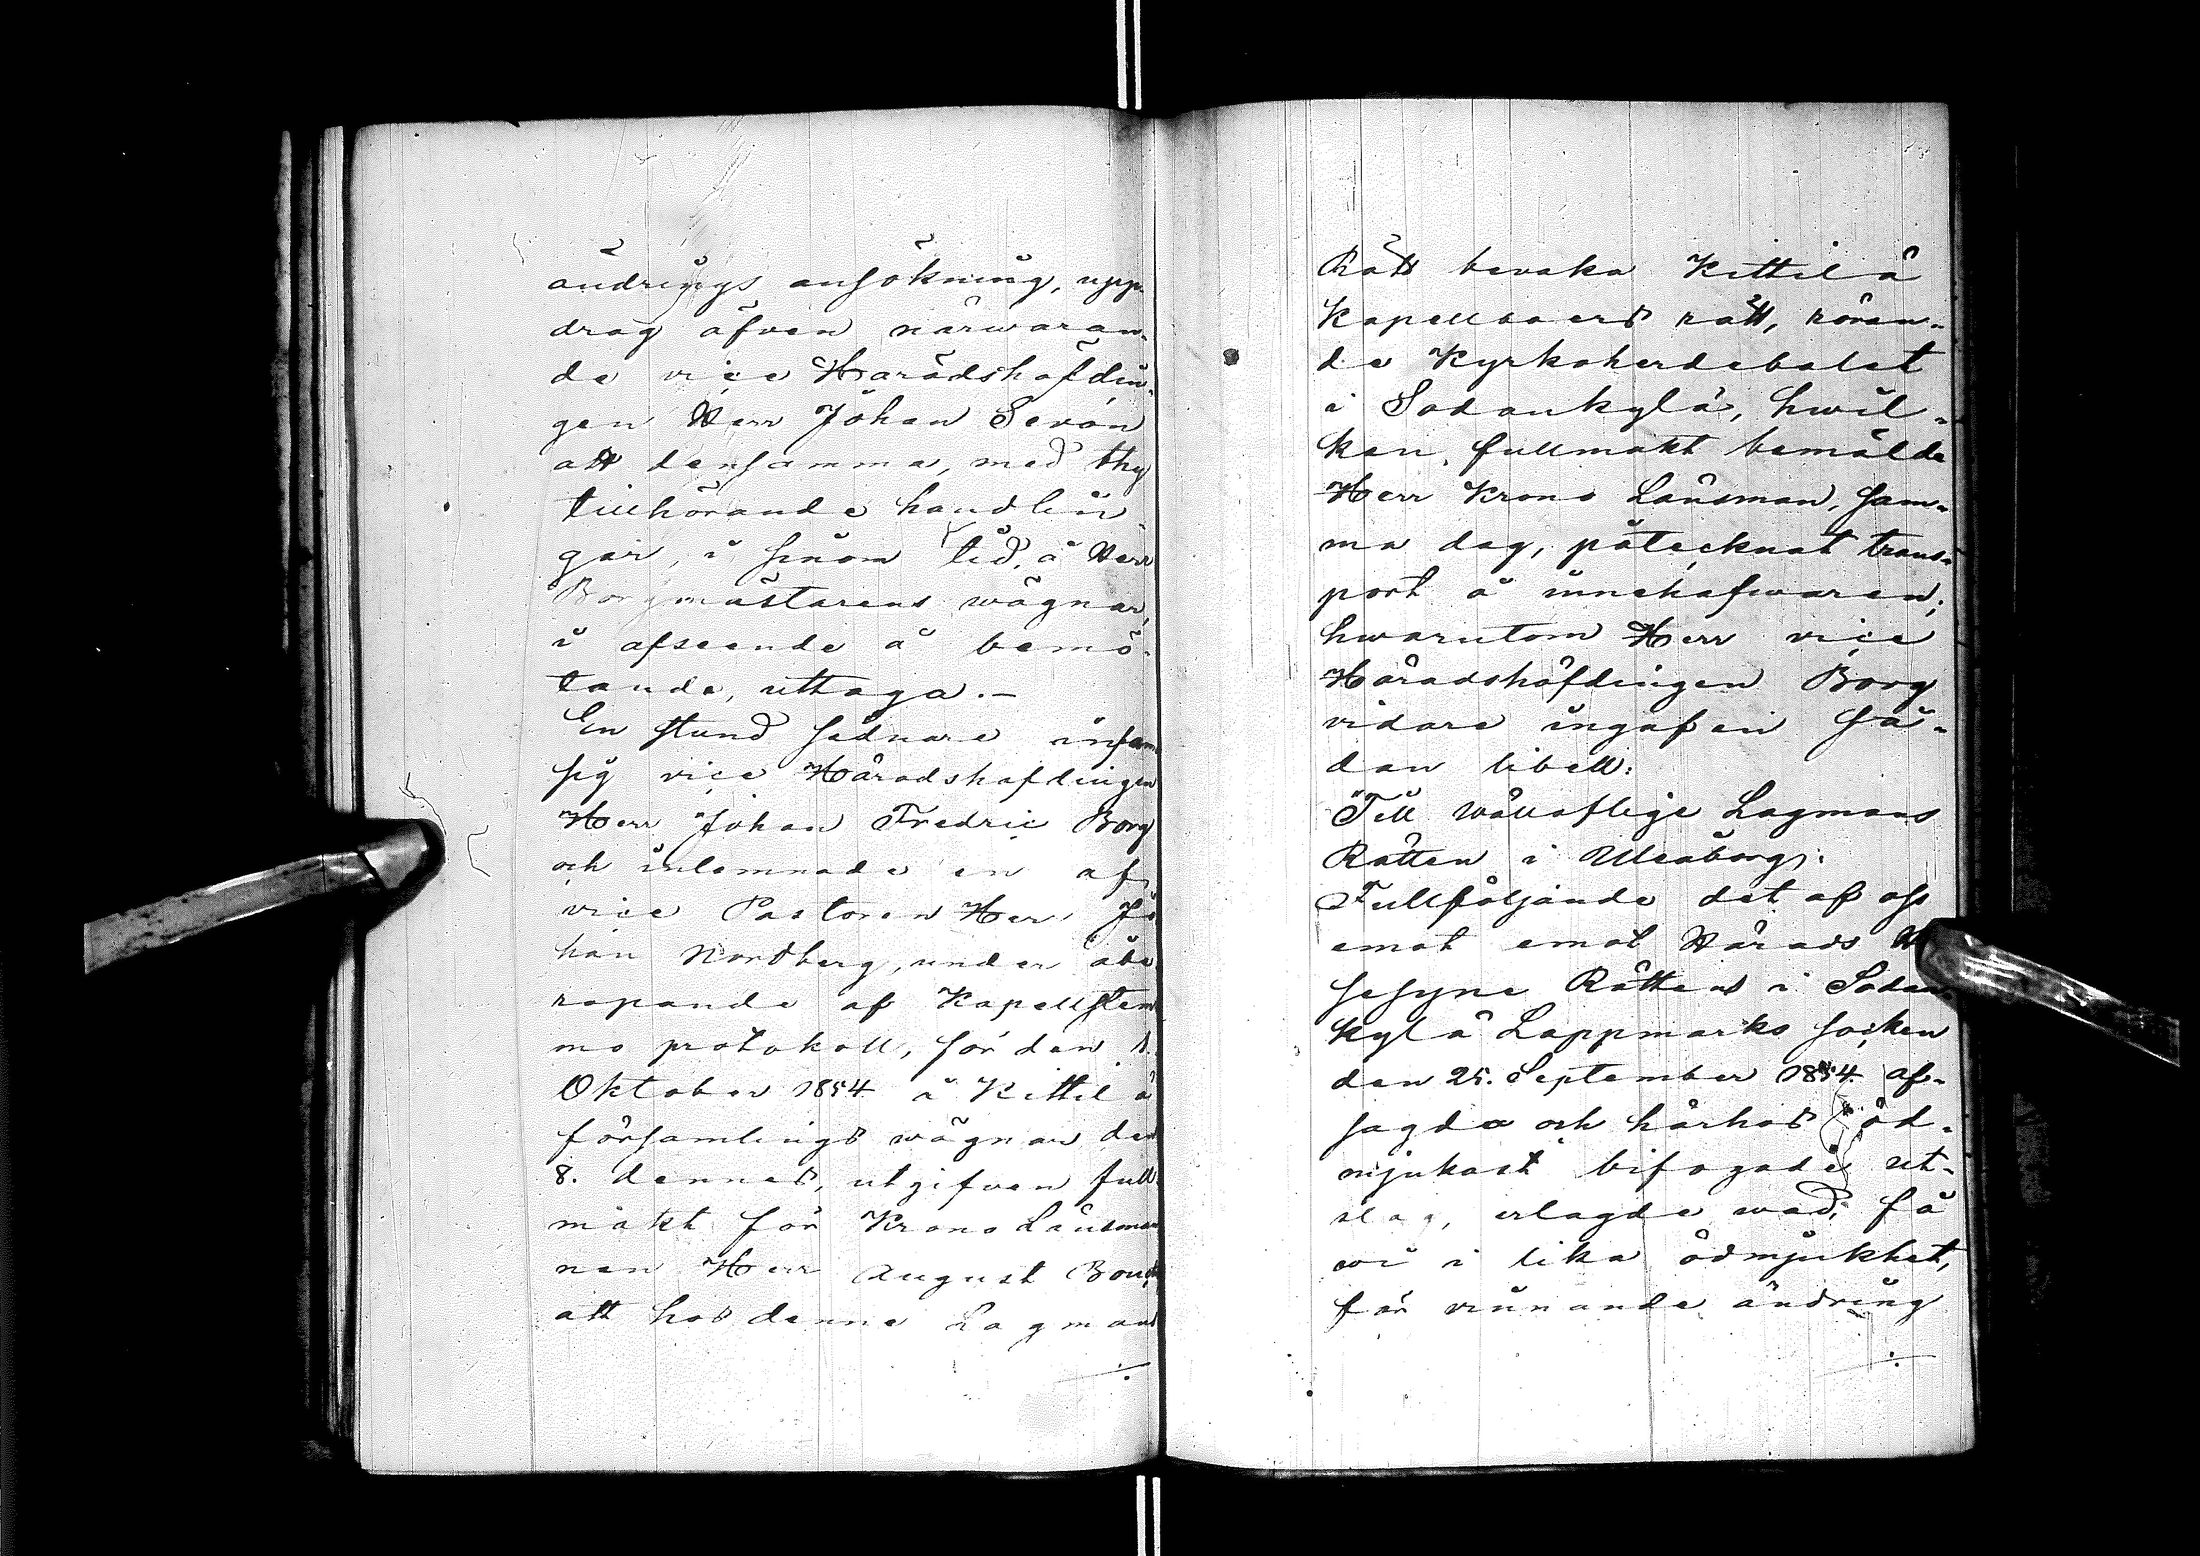 ändrings ansökning, upp-
drag äfven närwaran-
de vice Häradshöfdin-
gen Herr Johan Sevón
att densamma, med thy
tillhörande handlin-
gar, i sinom tid, å Herr
Borgmästarens wägnar,
i afseende å bemö-
tande, uttaga.-
En stund sednare infann
sig vice Häradshöfdingen
Herr Johan Fredric Borg
och inlemnade en af
vice Pastoren Herr Jo
han Nordberg, under åbe-
ropande af Kapellstem
mo protokoll, för den 1.
Oktober 1854 å Kittilä
församlings wägnar den
8. dennes, utgifven full
makt för Krono Länsman
nen Herr August
att hos denne Lagmans
Rätt bevaka Kittilä
Kapellboers rätt, röran-
de Kyrkoherdebolet
i Sodankylä, hwil-
ken fullmakt bemälde
Herr Krono Länsman, sam-
ma dag, påtecknat trans-
port å innehafwaren;
hwarutom Herr vice
Häradshöfdingen Borg
vidare ingaf en så-
dan libell:
"Till wällofliga Lagmans
Rätten i Uleåborg.
Fullföljande det af oss
emot emot Härads
sesyne Rättens i Sodan
kylä Lappmarks socken
den 25. September 1854 af-
sagda och härhos öd-
mjukast bifogade ut-
slag, erlagde wad, få
wi i lika ödmjukhet,
för vinnande ändring